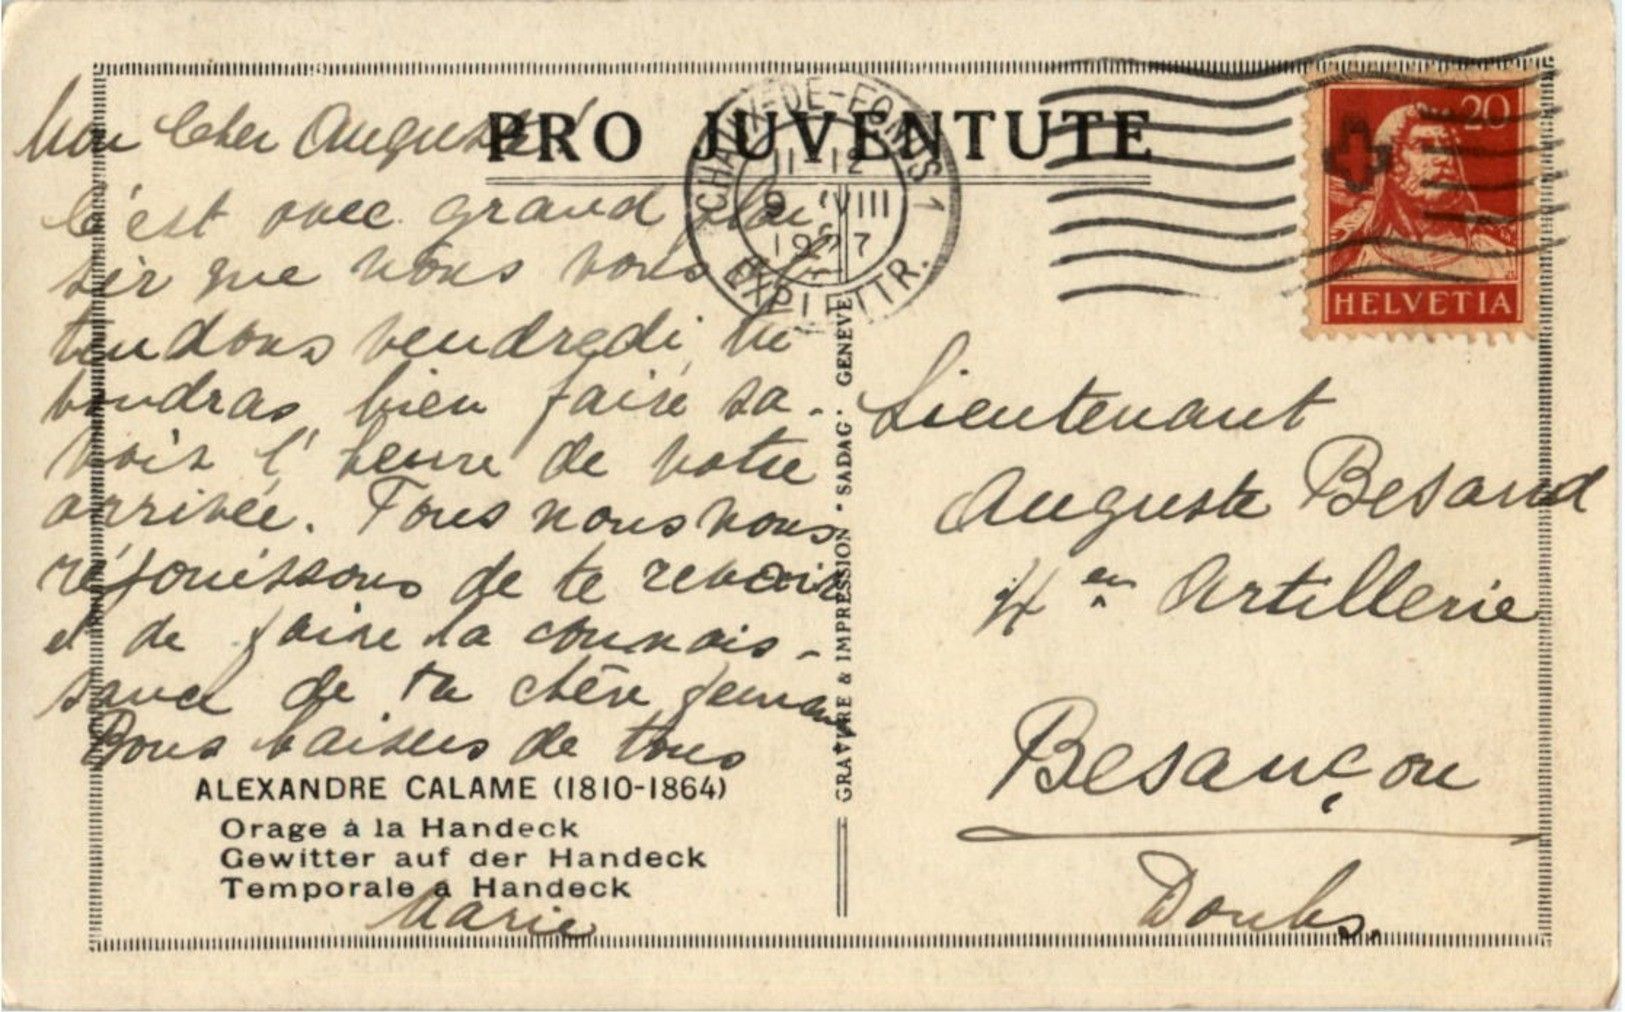 PRO JUVENTUTE
CHAUX-DE-FONDS 1
11-12
9 VIII
1927
EXP. LETTR.
20
HELVETIA
Mon Cher Auguste!
C'est avec grand plai
sir que nous vous
tendons vendredi, tu
voudras bien faire sa-
voir l'heure de votre
arrivée. Tous nous nous
réjouissons de te revoir
et de faire la connais-
sance de ta chère femme
Bons baisers de tous
Marie
ALEXANDRE CALAME (1810-1864)
Orage à la Handeck
Gewitter auf der Handeck
Temporale a Handeck
GRAVURE & IMPRESSION · SADAG · GENÈVE
Lieutenant
Auguste Besand
4en Artillerie
Besançon
Doubs.